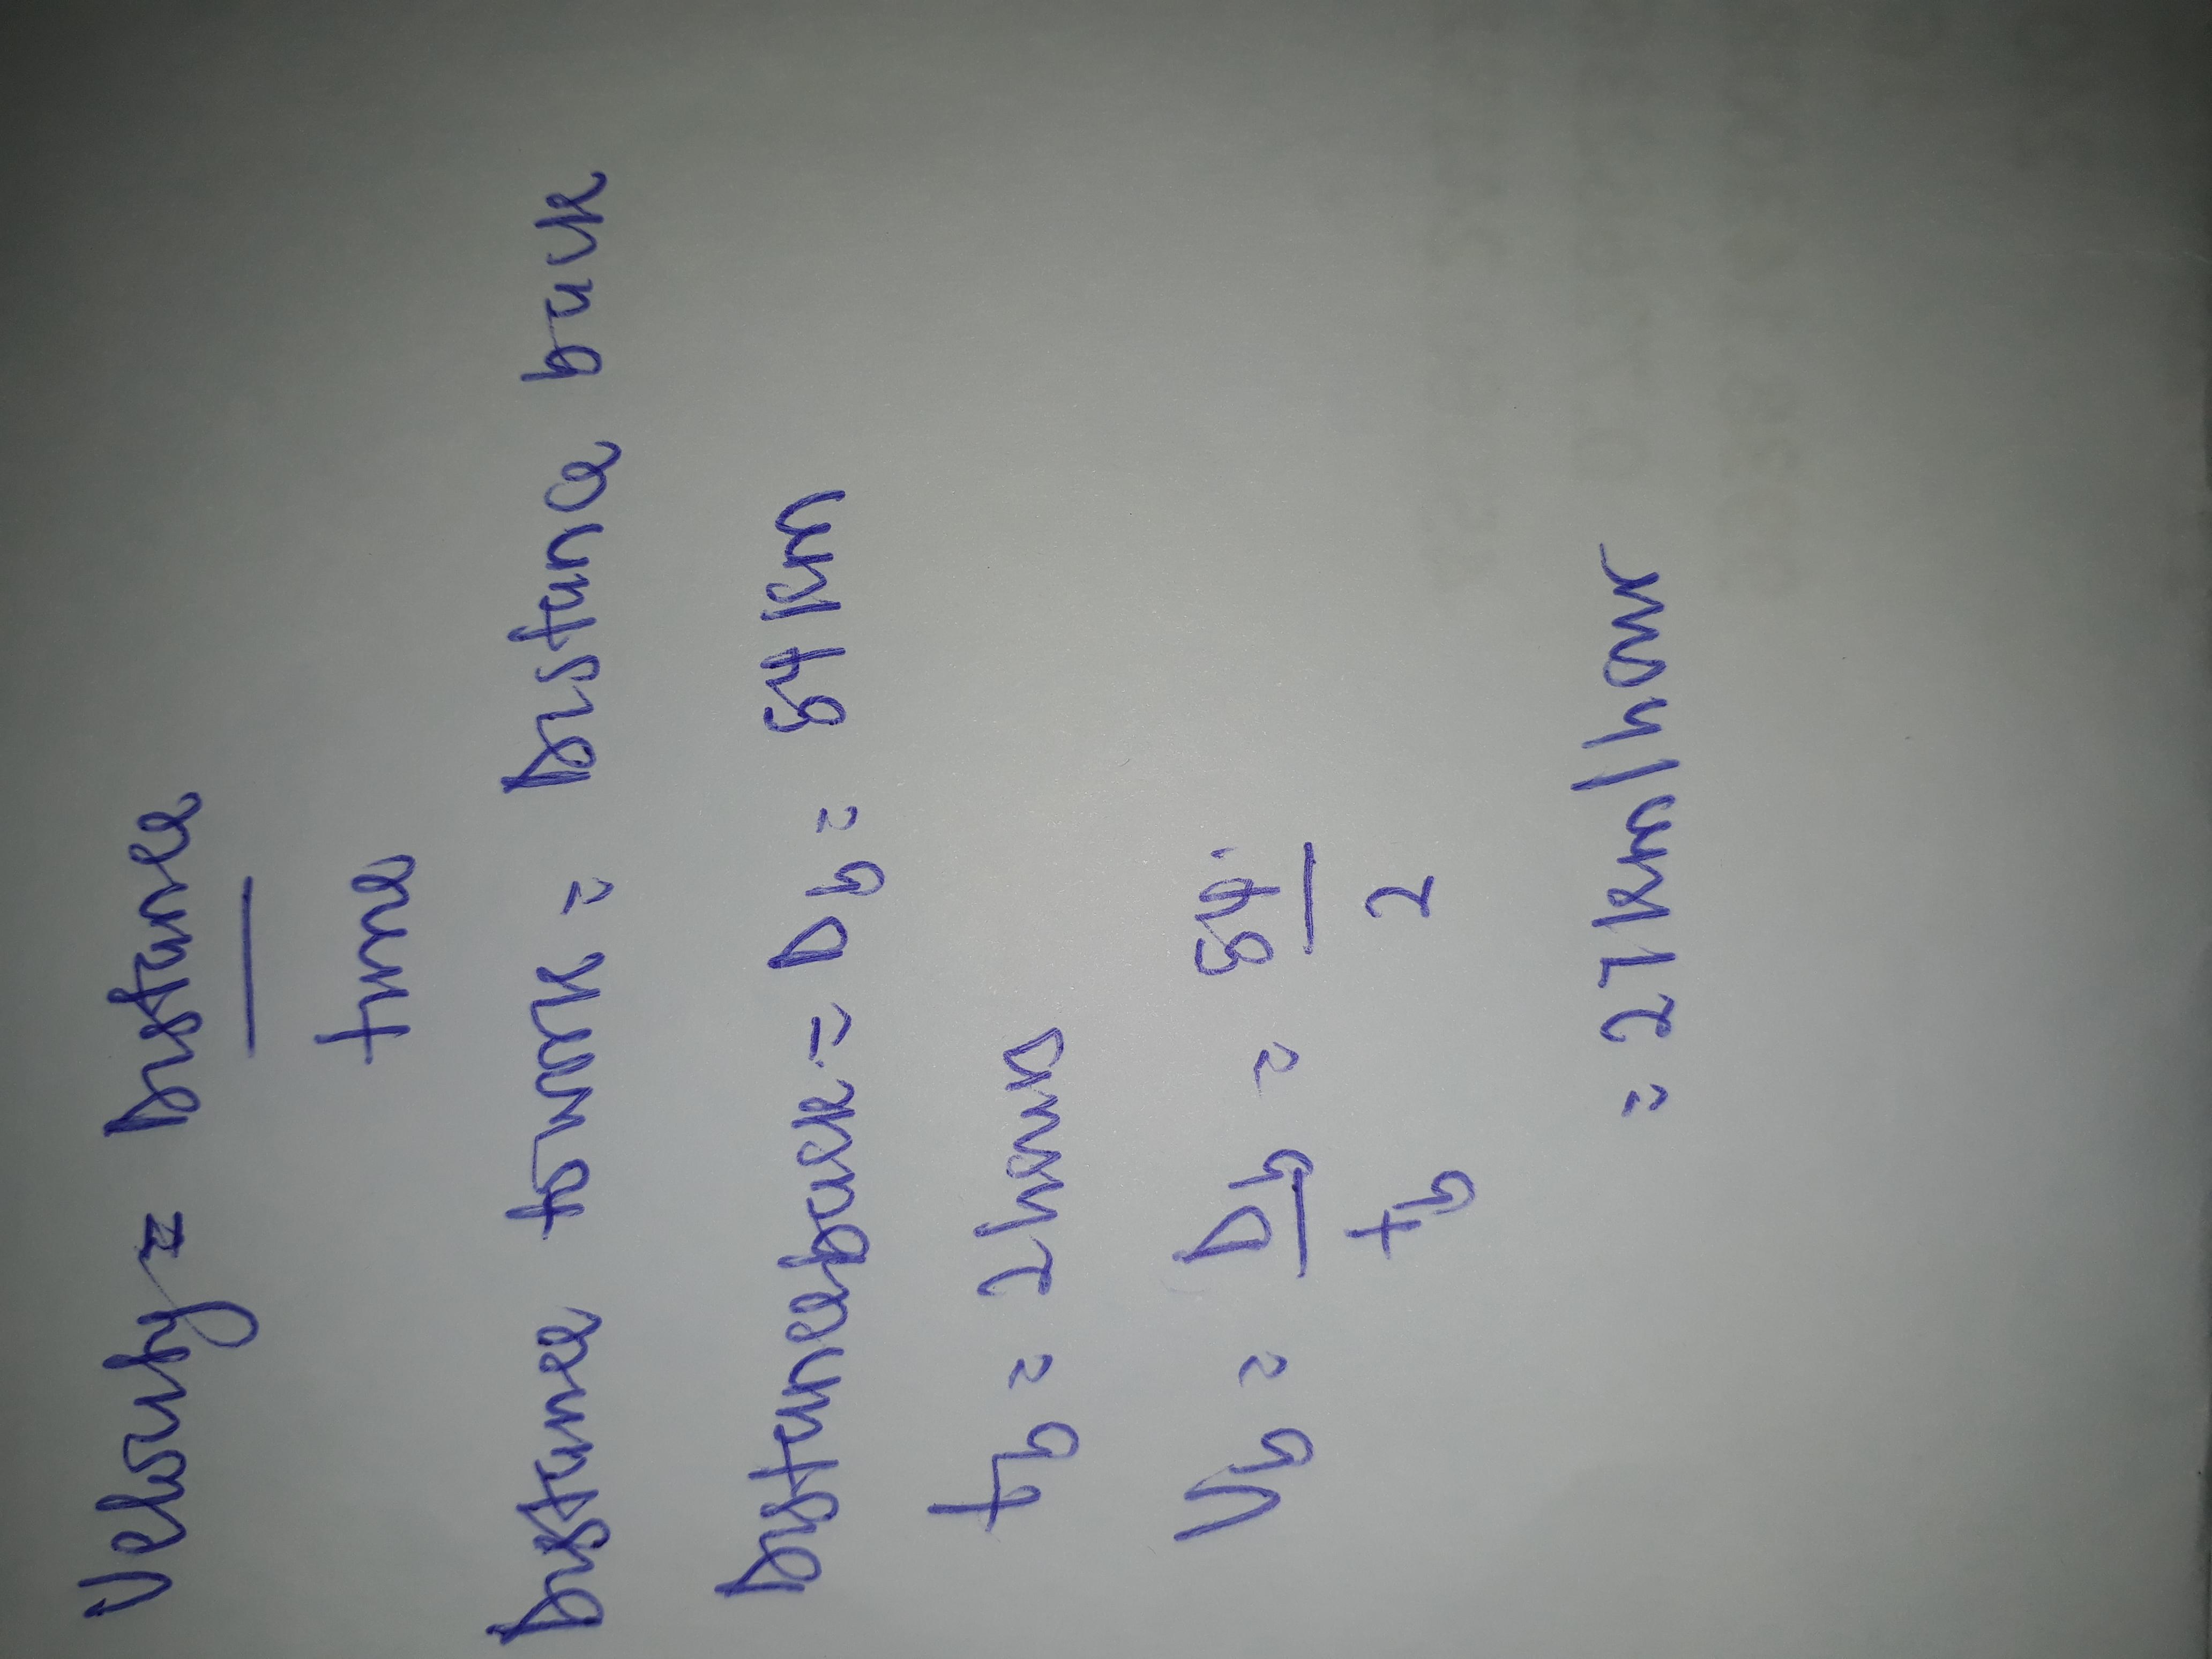 Velocity = Distance
time
Distance to work = Distance back
Distance back = Db = 54 km
tb = 2 hours
Vb = Db = 54
tb 2
= 27 km/hour